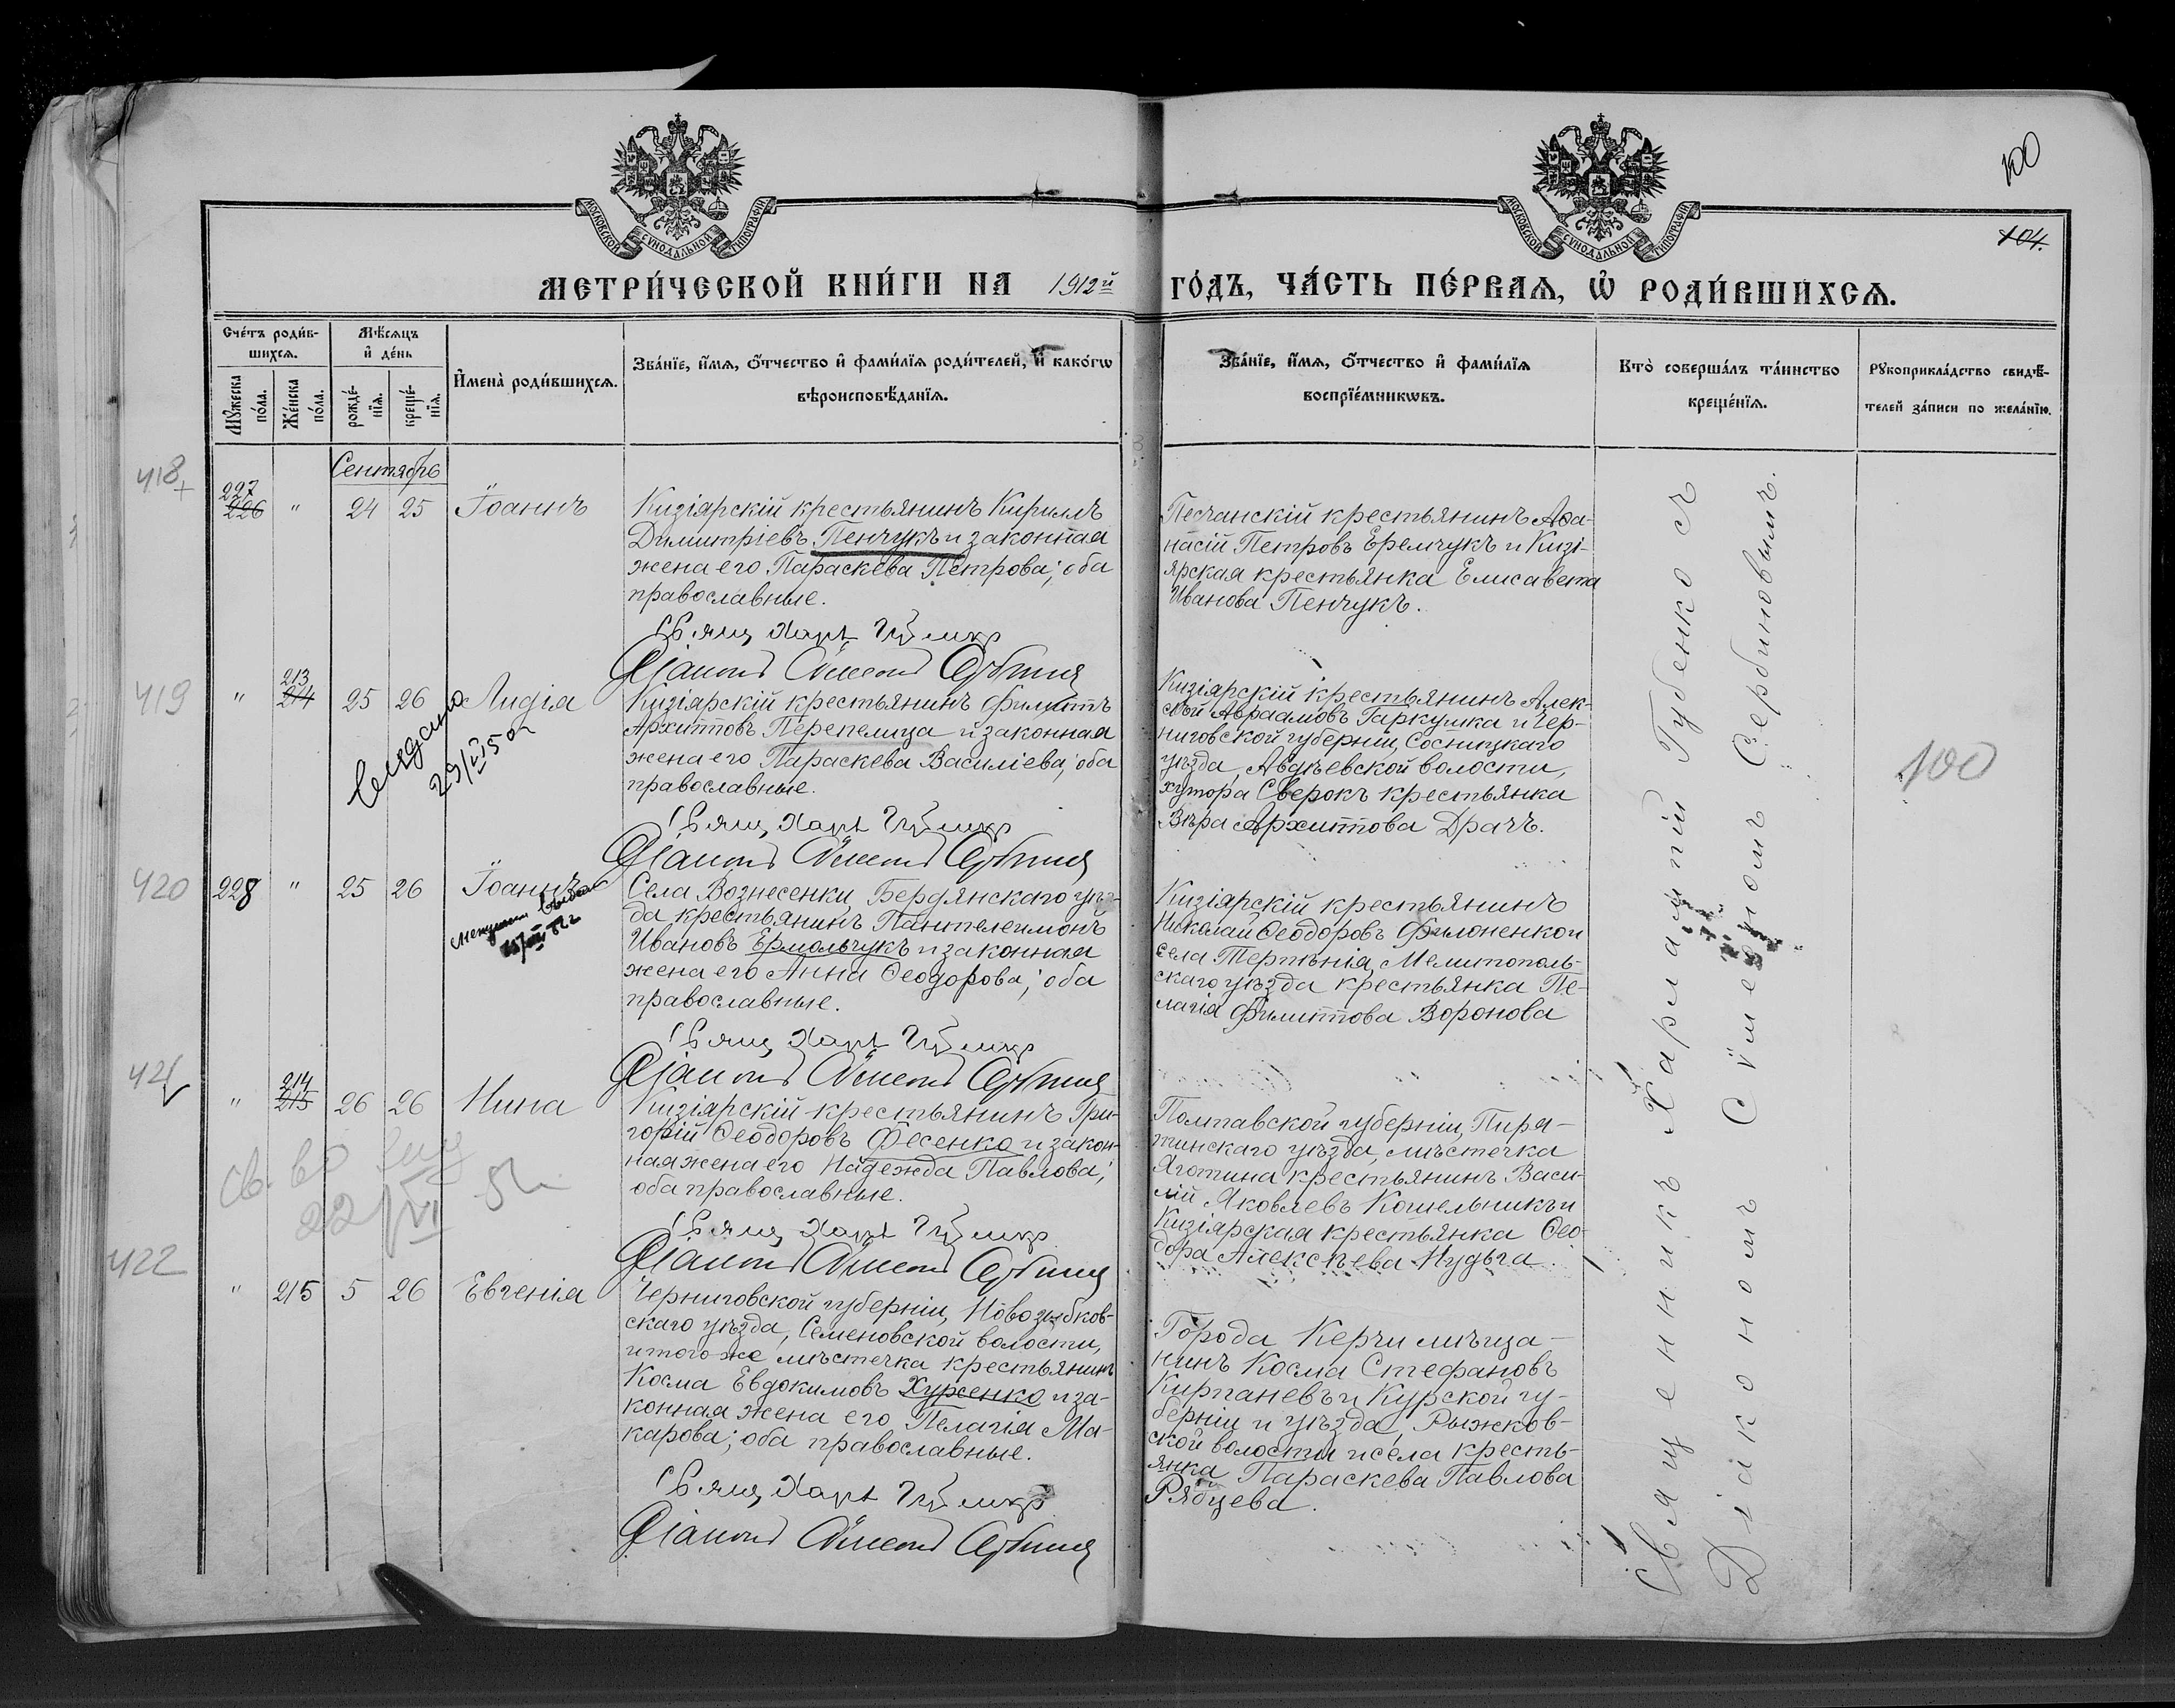 100
104.
МОСКОВСКОЙ СѴНОДАЛЬНОЙ ТИПОГРАФІИ
МОСКОВСКОЙ СѴНОДАЛЬНОЙ ТИПОГРАФІИ
МЕТРИ́ЧЕСКОЙ КНИ́ГИ НА 1912й ГО́ДЪ, ЧА́СТЬ ПЕ́РВАѦ, Ѡ҆ РОДИ́ВШИХСѦ.
Сче́тъ роди́в-
шихсѧ.
Мꙋ́жеска
по́ла.
Же́нска
по́ла.
Мѣ́сѧцъ
и҆ де́нь
рожде́-
нїѧ.
креще́-
нїѧ.
И҆мена̀ роди́вшихсѧ.
Зва́нїе, и҆́мѧ, ѻ҆́тчество и҆ фами́лїѧ роди́телей, и҆ како́гѡ
вѣроисповѣ́данїѧ.
Зва́нїе, и҆́мѧ, ѻ҆́тчество и҆ фами́лїѧ
воспрїе́мникѡвъ.
Кто̀ соверша́лъ та́инство
креще́нїѧ.
Рꙋкоприкла́дство свидѣ́-
телей за́писи по жела́нїю.
Сентябрь
418
227
226 " 24 25 Іоаннъ
Кизіярскій крестьянинъ Кириллъ
Димитріевъ Пенчукъ и законная
жена его Параскева Петрова; оба
православные.
Песчанскій крестьянинъ Аѳа-
насій Петровъ Еремчукъ и Кизі-
ярская крестьянка Елисавета
Иванова Пенчукъ.
419
213
214
" 25 26 Лидія
Кизіярскій крестьянинъ Филиппъ
Архипповъ Перепелица и законная
жена его Параскева Василіева; оба
православные.
Кизіярскій крестьянинъ Алек-
сѣй Авраамовъ Гаркушка и Чер-
ниговской губерніи, Сосницкаго
уѣзда, Авдѣевской волости,
хутора Сверокъ крестьянка
Вѣра Архиппова Драчъ.
100
420
228 " 25 26 Іоаннъ
Села Вознесенки, Бердянскаго уѣз-
да крестьянинъ Пантелеимонъ
Ивановъ Ермольчукъ и законная
жена его Анна Ѳеодорова; оба
православные.
Кизіярскій крестьянинъ
Николай Ѳеодоровъ Филоненко и
села Терпѣнія, Мелитополь-
скаго уѣзда крестьянка Пе-
лагія Филиппова Воронова
421
214
215
" 26 26 Нина
Кизіярскій крестьянинъ Гри-
горій Ѳеодоровъ Фесенко и закон-
ная жена его Надежда Павлова;
оба православные.
Полтавской губерніи, Пиря-
тинскаго уѣзда, мѣстечка
Яготина крестьянинъ Васи-
лій Яковлевъ Кошельникъ и
Кизіярская крестьянка Ѳео-
дора Алексѣева Нудьга.
422
" 215 5 26 Евгенія
Черниговской губерніи, Новозыбков-
скаго уѣзда, Семеновской волости,
и того-же мѣстечка крестьянинъ
Косма Евдокимовъ Хурсенко и за-
конная жена его Пелагія Ма-
карова; оба православные.
Города Керчи мѣща-
нинъ Косма Стефановъ
Кирпаневъ и Курской гу-
берніи и уѣзда, Рыжков-
ской волости и села кресть-
янка Параскева Павлова
Рябцева.
Священникъ Харлампій Губенко съ
Діакономъ Сѵмеономъ Сербиновымъ.